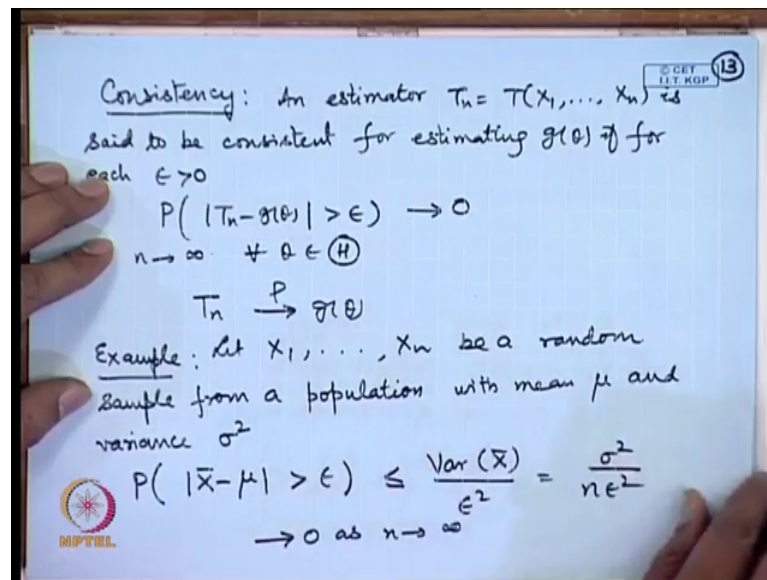 © CET
I.I.T. KGP
13
Consistency: An estimator Tn = T(X1, ..., Xn) is
said to be consistent for estimating g(θ) if for
each ϵ >0
P( |Tn - g(θ)| > ϵ) → 0
n → ∞ ∀ θ ∈ Ⓗ
Tn →P g(θ)
Example: Let X1, ..., Xn be a random
sample from a population with mean μ and
variance σ²
P( |X̄-μ| > ϵ) ≤ Var (X̄)/ϵ² = σ²/nϵ²
→ 0 as n → ∞
NPTEL